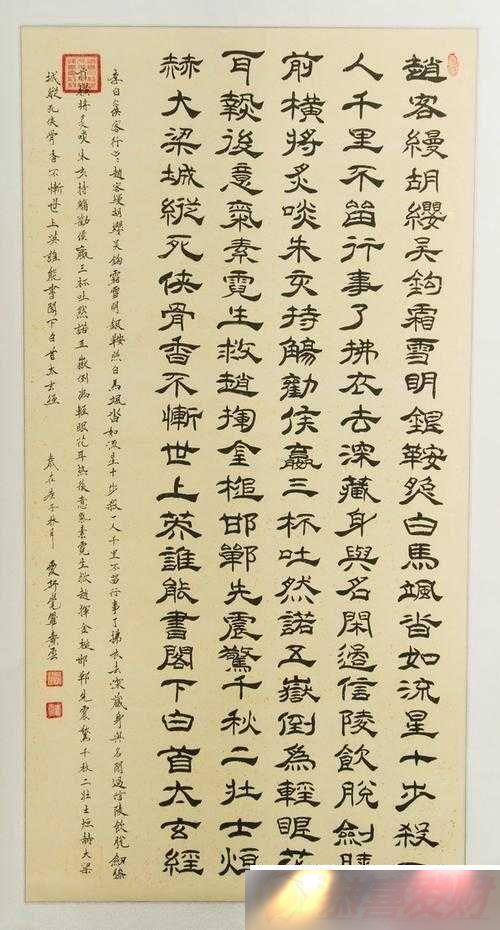 趙客縵胡纓吴鉤霜雪明銀鞍照白馬颯沓如流星十步殺一
人千里不留行事了拂衣去深藏身與名閑過信陵飲脫劍膝
前橫將炙啖朱亥持觴勸侯嬴三杯吐然諾五嶽倒為輕眼花
耳熱後意氣素霓生救趙揮金槌邯鄲先震驚千秋二壯士烜
赫大梁城縱死俠骨香不慚世上英誰能書閣下白首太玄經
李白俠客行云趙客縵胡纓吴鉤霜雪明銀鞍照白馬颯沓如流星十步殺一人千里不留行事了拂衣去深藏身與名閑過信陵飲脫劍膝
前橫將炙啖朱亥持觴勸侯嬴三杯吐然諾五嶽倒為輕眼花耳熱後意氣素霓生救趙揮金槌邯鄲先震驚千秋二壯士烜赫大梁
城縱死俠骨香不慚世上英誰能書閣下白首太玄經 歲在庚子秋月